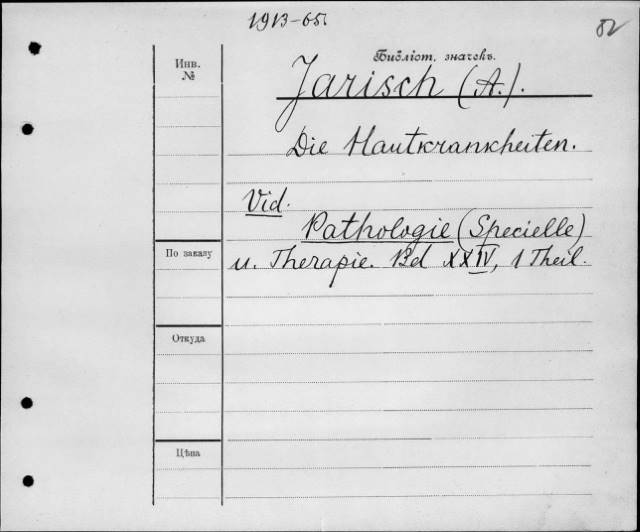 1913-65.
82
Инв.
№
Библіот. значекъ.
Jarisch (A.).
Die Hautkrankheiten.
Vid.
Pathologie (Specielle)
По заказу
u. Therapie. Bd XXIV, 1 Theil.
Откуда
Цѣна